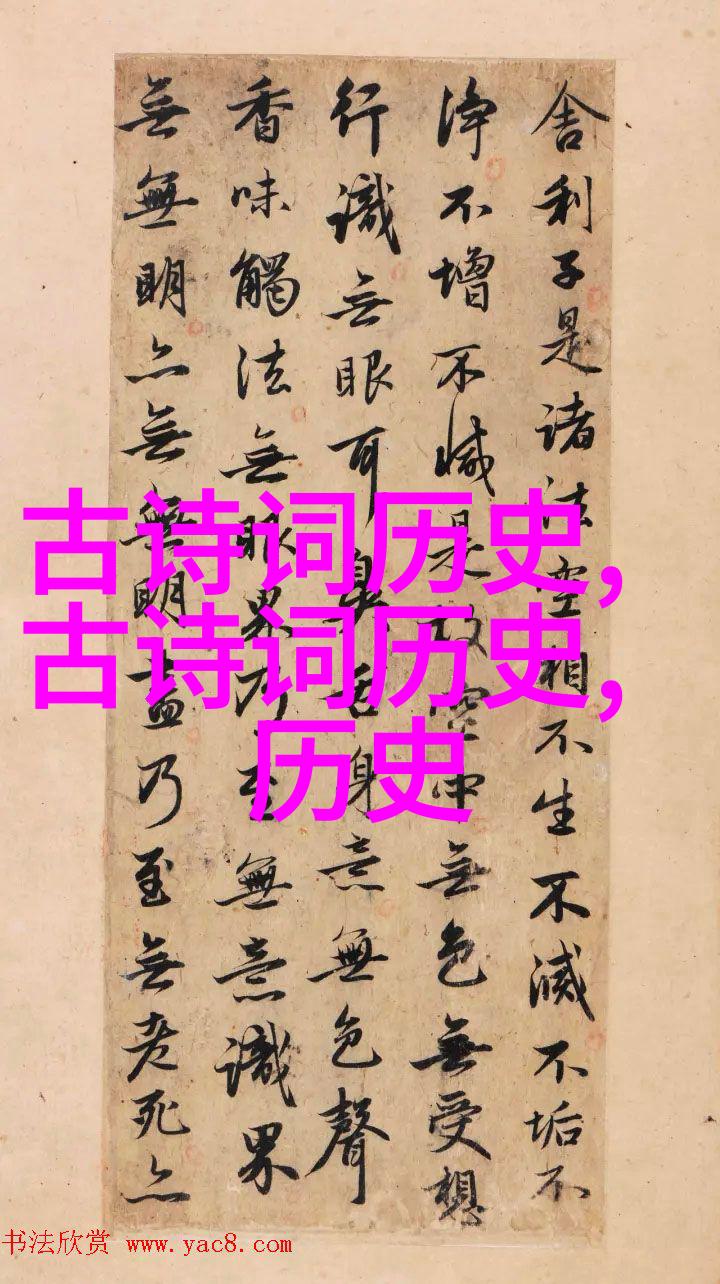 舍利子是诸法空相不生不滅不垢不
淨不增不減是故空中無色無受想
行識無眼耳鼻舌身意無色聲
香味觸法無眼界乃至無意識界
無無明亦無無明盡乃至無老死亦
古诗词历史,
古诗词历史,
历史
书法欣赏 www.yac8.com